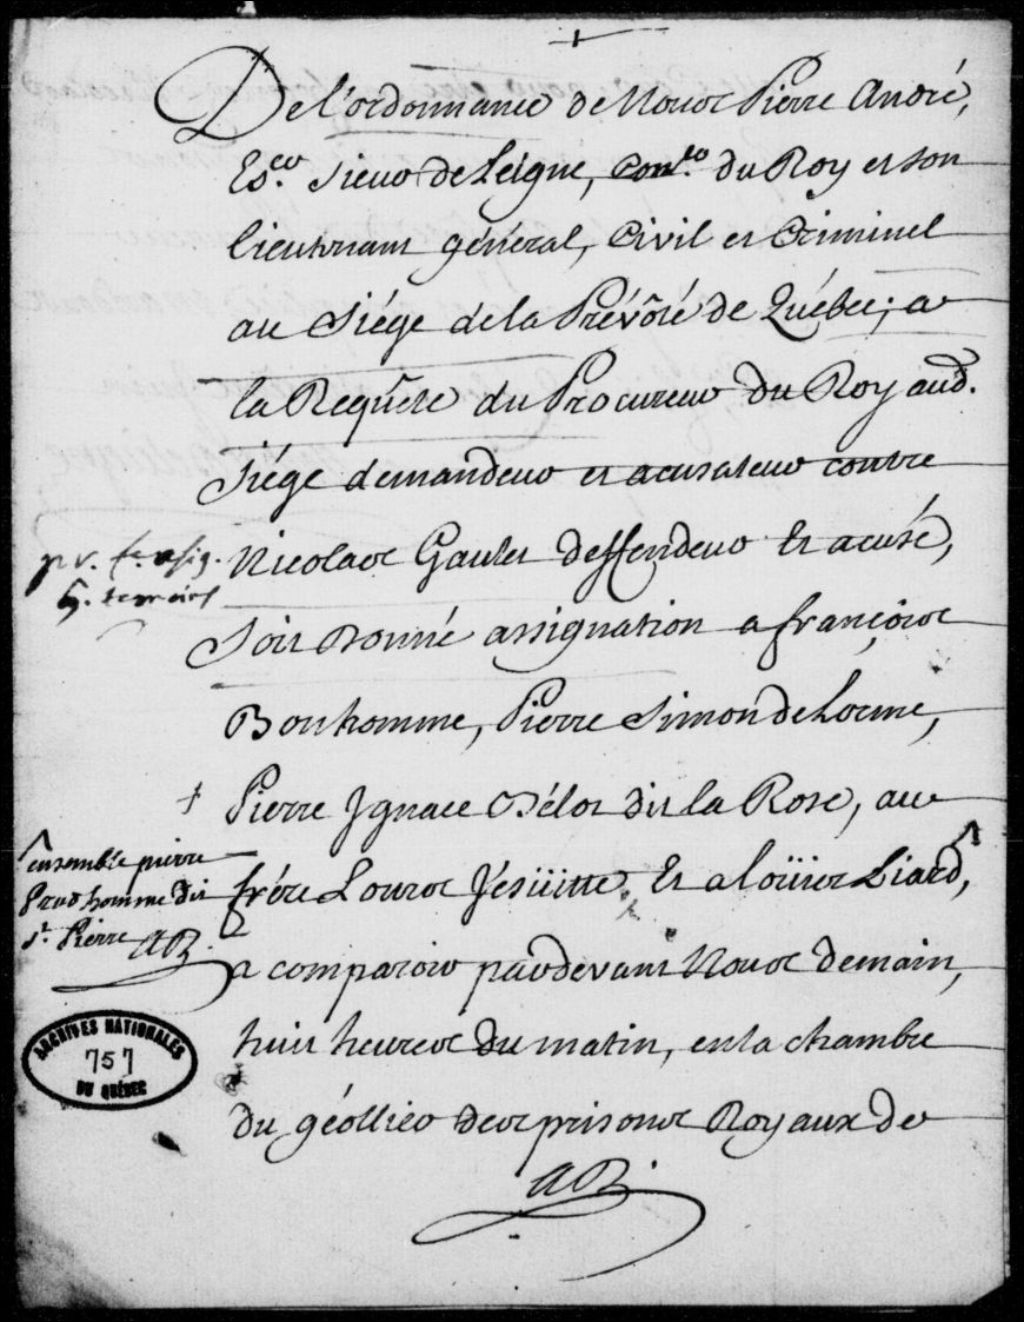 De l'ordonnance de Nous Pierre André,
Esc.er sieur de Leigne, Con.er du Roy et son
lieutenant général, Civil et Criminel
au Siége de la Prévôté de Québec; a
la Requête du Procureur du Roy aud.
siége demandeur et acusateur contre
Nicolas Gauter deffendeur Et acusé,
Soit donné assignation a françois
Bonhomme, Pierre Simon deLorme,
+ Pierre Jgnace Délos dit la Rose, au
frére Louis Jésüitte, Et a loüis Liard,
a comparoir pardevant Nous demain,
huit heures du matin, en la chambre
du géollier des prisons Royaux de
AR
p v. fr. assig.
5. temoins
ensemble pierre
Prudhomme dit
St. Pierre AR
ARCHIVES NATIONALES
757
DU QUÉBEC